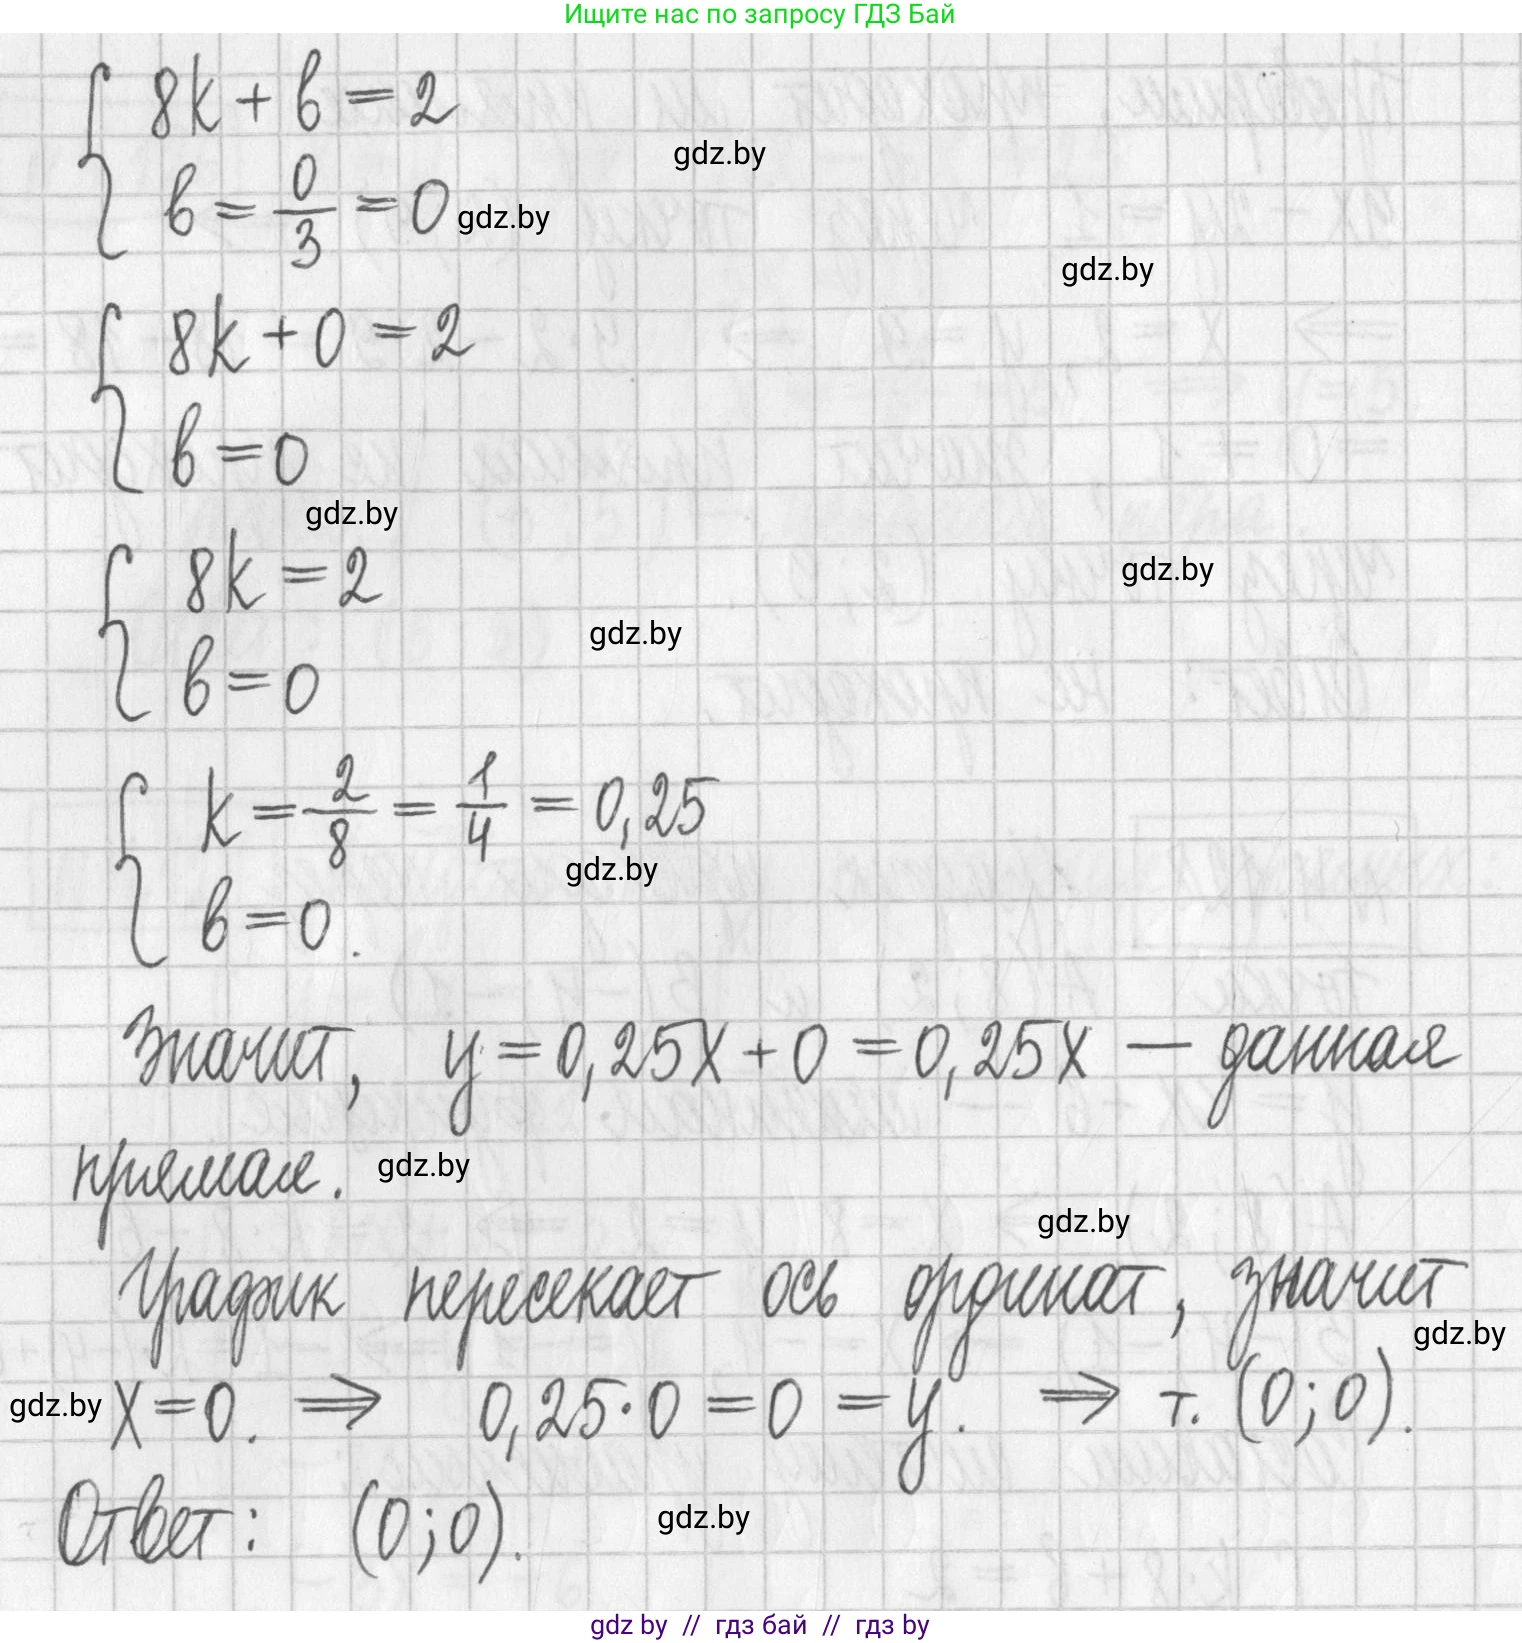 Ищите нас по запросу ГДЗ Бай
8k + в = 2
gdz.by
в = 0/3 = 0 gdz.by
gdz.by
8k + 0 = 2
в = 0
gdz.by
8k = 2
gdz.by
gdz.by
в = 0
k = 2/8 = 1/4 = 0,25
gdz.by
в = 0.
Значит, y = 0,25x + 0 = 0,25x — данная
прямая. gdz.by
gdz.by
График пересекает ось ординат, значит
gdz.by
gdz.by x = 0. ⇒ 0,25·0 = 0 = y. ⇒ т. (0;0).
Ответ: (0;0). gdz.by
gdz by // гдз бай // гдз by